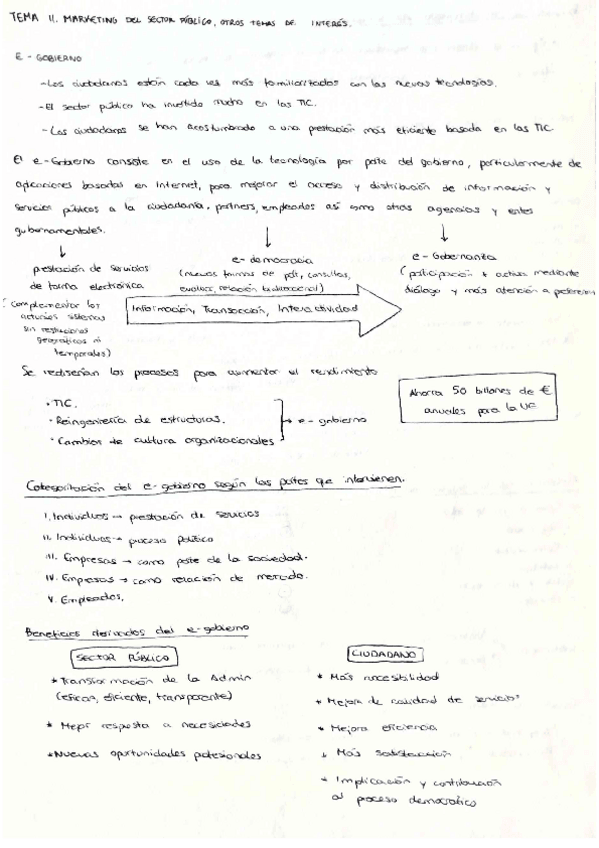 TEMA 11. MARKETING DEL SECTOR PÚBLICO, OTROS TEMAS DE INTERÉS.
E - GOBIERNO
- Los ciudadanos están cada vez más familiarizados con las nuevas tecnologías.
- El sector público ha invertido mucho en las TIC.
- Los ciudadanos se han acostumbrado a una prestación más eficiente basada en las TIC.
El e-Gobierno consiste en el uso de la tecnología por parte del gobierno, particularmente de
aplicaciones basadas en Internet, para mejorar el acceso y distribución de información y
servicios públicos a la ciudadanía, partners, empleados así como otras agencias y entes
gubernamentales.
prestación de servicios
de forma electrónica
(complementar los
actuales sistemas
sin restricciones
geográficas ni
temporales)
e-democracia
(nuevas formas de part, consultas,
evaluac, relación bidireccional)
e-Gobernanza
(participación + activa mediante
diálogo y más atención a
Información, Transacción, Interactividad
Se rediseñan los procesos para aumentar el rendimiento
• TIC.
• Reingeniería de estructuras.
• Cambios de cultura organizacionales
e-gobierno
Ahorra 50 billones de €
anuales para la UE
Categorización del e-gobierno según las partes que intervienen.
I. Individuos → prestación de servicios
II. Individuos → proceso político
III. Empresas → como parte de la sociedad.
IV. Empresas → como relación de mercado.
V. Empleados.
Beneficios derivados del e-gobierno
SECTOR PÚBLICO
* Transformación de la Admin
(eficaz, eficiente, transparente)
* Mejor respuesta a necesidades
* Nuevas oportunidades profesionales
CIUDADANO
* Más accesibilidad
* Mejora de calidad de servicios
* Mejora eficiencia
* Más satisfacción
* Implicación y contribución
al proceso democrático